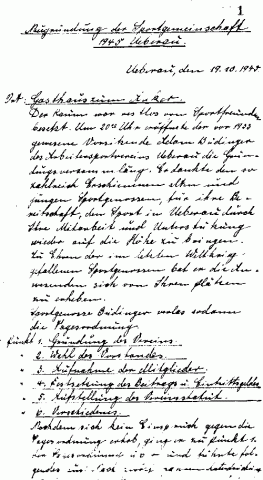 1
Neugründung der Sportgemeinschaft
1945 Ueberau.
Ueberau, den 19.10.1945
Ort: Gasthaus zum Anker.
Der Raum war restlos von Sportfreunden
besetzt. Um 20 Uhr eröffnete der vor 1933
gewesene Vorsitzende Adam Büdinger
des Arbeitersportvereins Ueberau die Grün-
dungsversammlung. Er dankte den so
zahlreich Erschienenen alten und
jungen Sportgenossen, für ihre Be-
reitschaft, den Sport in Ueberau durch
Ihre Mitarbeit und Unterstützung
wieder auf die Höhe zu bringen.
Zu Ehren der im letzten Weltkrieg
gefallenen Sportgenossen bat er die An-
wesenden sich von Ihren Plätzen
zu erheben.
Sportgenosse Büdinger verlas sodann
die Tagesordnung
Punkt 1. Gründung des Vereins
" 2. Wahl des Vorstandes
" 3. Aufnahme der Mitglieder
" 4. Festsetzung des Beitrags u. Eintrittsgeldes
" 5. Aufstellung des Vereinsstatut
" 6. Verschiedenes
Nachdem sich kein Einspruch gegen die
Tagesordnung erhob, ging er zu Punkt 1
der Tagesordnung über und führte fol-
gendes aus. Nach